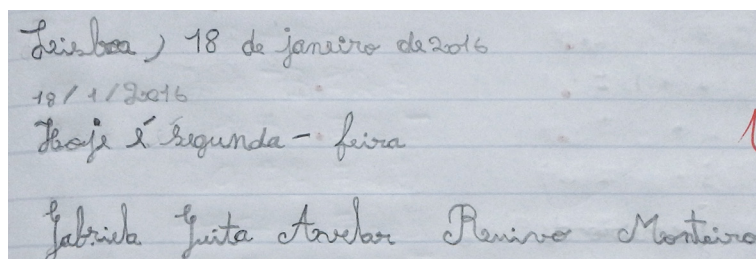 Leisboa, 18 de janeiro de 2016
18/1/2016
Hoje é segunda-feira
Gabriela Guita Avelar Monteiro